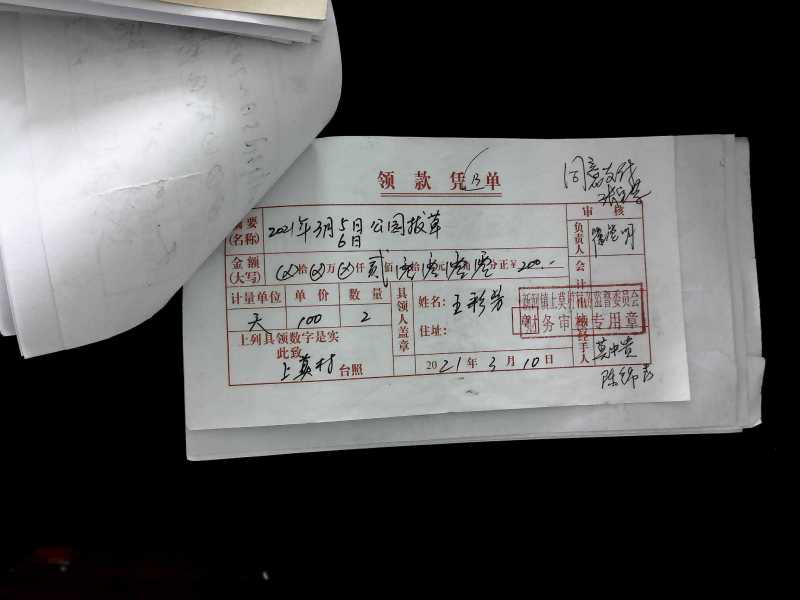 领款凭单
同意支付
审核
摘要
(名称)
2021年3月5日 公园拔草
6日
负责人
金额
(大写)
拾 万 仟 贰 佰 拾 元 角 分正￥200.-
会计
计量单位 单价 数量
天 100 2
具领人盖章
姓名: 王彩芳
住址:
新河镇上莫村村务监督委员会
财务审核专用章
经手人
莫中贵
上列具领数字是实
此致
上莫村 台照
2021年3月10日